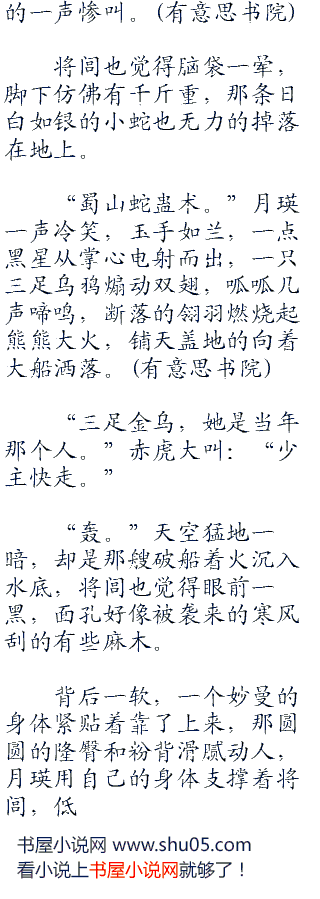 的一声惨叫。(有意思书院)
将闾也觉得脑袋一晕，
脚下仿佛有千斤重，那条日
白如银的小蛇也无力的掉落
在地上。
“蜀山蛇蛊术。”月瑛
一声冷笑，玉手如兰，一点
黑星从掌心电射而出，一只
三足乌鸦煽动双翅，呱呱几
声啼鸣，断落的翎羽燃烧起
熊熊大火，铺天盖地的向着
大船洒落。(有意思书院)
“三足金乌，她是当年
那个人。”赤虎大叫：“少
主快走。”
“轰。”天空猛地一
暗，却是那艘破船着火沉入
水底，将闾也觉得眼前一
黑，面孔好像被袭来的寒风
刮的有些麻木。
背后一软，一个妙曼的
身体紧贴着靠了上来，那圆
圆的隆臀和粉背滑腻动人，
月瑛用自己的身体支撑着将
闾，低
书屋小说网 www.shu05.com
看小说上书屋小说网就够了！